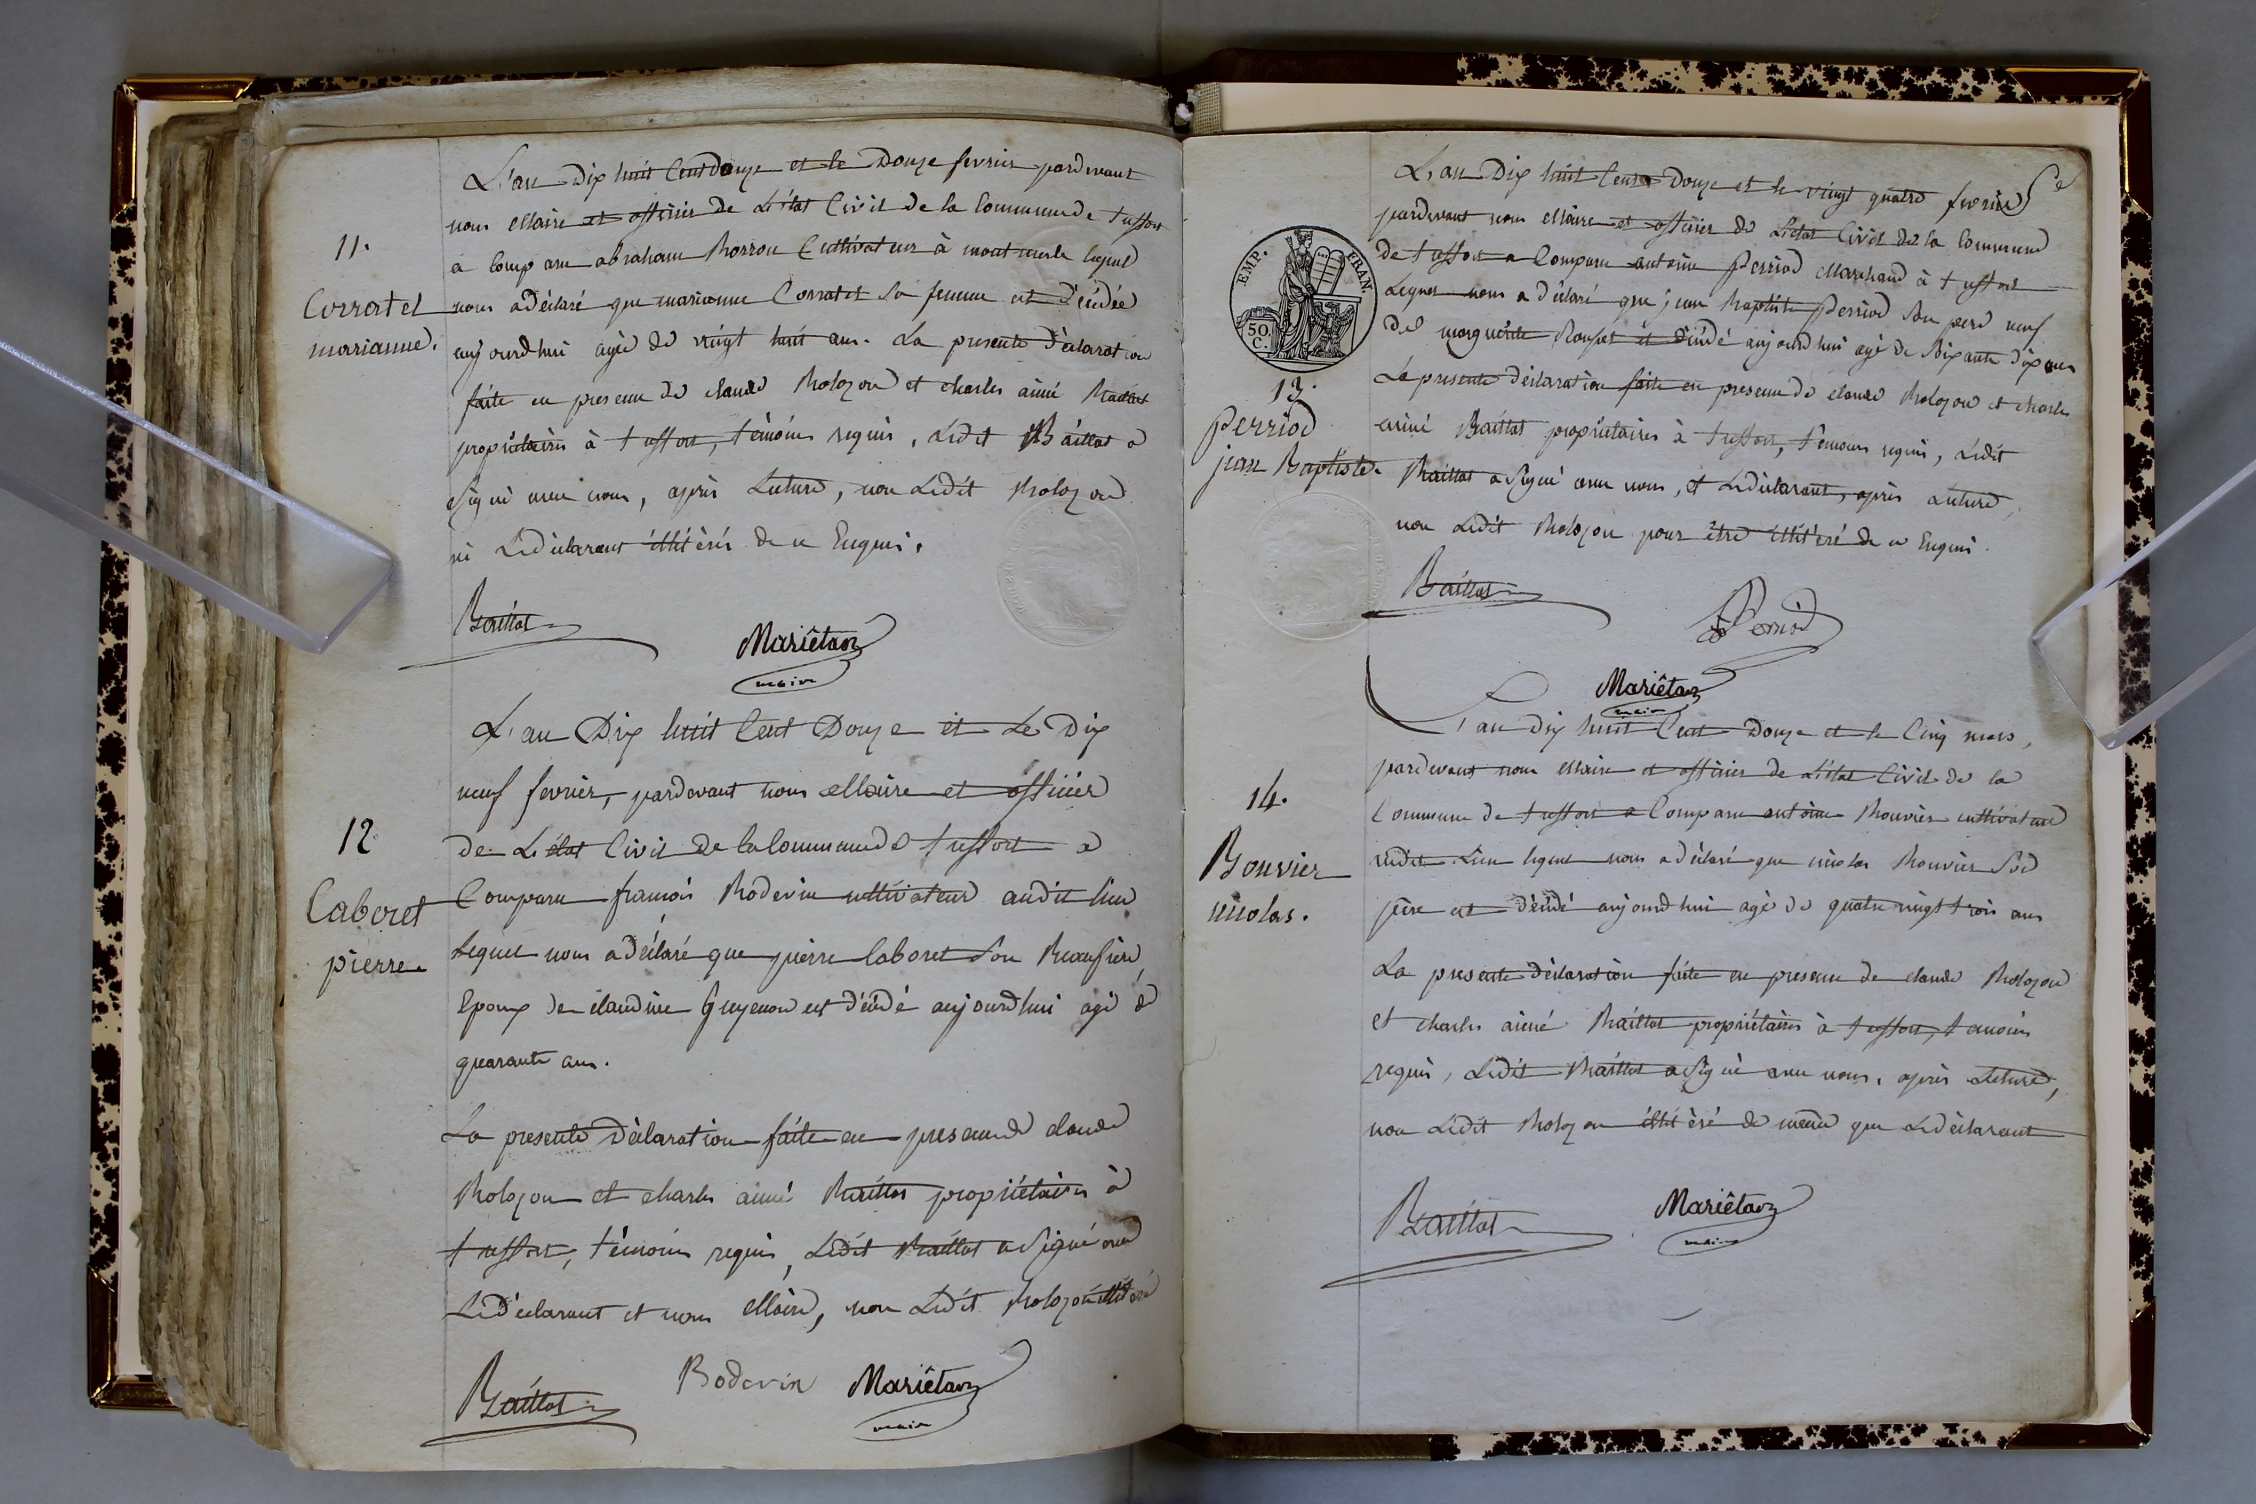 11.
Corratel
marianne.
L'an Dix huit Cent Douze et le Douze fevrier pardevant
nous Maire et officier de L'état Civil de la Commune de treffort
a Comparu abraham Borron Cultivateur à montmerle lequel
nous a déclaré que marianne Corratel sa femme est décédée
aujourdhui agée de vingt huit ans. La presente déclaration
faite en presence de claude Bolozon et charles aimé Baillat
propriétaires à treffort, témoins requis, Ledit Baillat a
signé avec nous, après Lecture, non Ledit Bolozon
ni Le déclarant illitérés de ce Enquis.
Baillat
Mariêtan
maire
12
Caboret
pierre.
L'an Dix huit Cent Douze et Le Dix
neuf fevrier, pardevant nous Maire et officier
de L'état Civil de la Commune de treffort a
Comparu francois Boderin cultivateur audit lieu
Lequel nous a déclaré que pierre Caboret son Beaufrere
Epoux de claudine Guyenon est décédé aujourdhui agé de
quarante ans.
La presente Déclaration faite en presence de claude
Bolozon et charles aimé Baillat propriétaires à
treffort, témoins requis, Ledit Baillat a signé avec
Le Déclarant et nous Maire, non Ledit Bolozon illitéré
Baillat
Boderin
Mariêtan
maire
EMP. FRAN.
50.
C.
13.
Perriod
jean Baptiste.
L'an Dix huit Cent Douze et le vingt quatre fevrier
pardevant nous Maire et officier de L'état Civil de la Commune
de treffort a Comparu antoine Perriod Marchand à treffort
Lequel nous a déclaré que jean Baptiste Perriod Son pere veuf
de marguerite Rouset est décédé aujourdhui agé de Soixante dix ans
La presente déclaration faite en presence de claude Bolozon et charles
aimé Baillat propriétaires à treffort, témoins requis, Ledit
Baillat a Signé avec nous, et Le déclarant, après Lecture,
non Ledit Bolozon pour être illitéré de ce Enquis.
Baillat
Perriod
Mariêtan
maire
14.
Bouvier
nicolas.
L'an dix huit Cent Douze et le Cinq mars,
pardevant nous Maire et officier de L'état Civil de la
Commune de treffort a Comparu antoine Bouvier cultivateur
audit Lieu lequel nous a déclaré que nicolas Bouvier Son
père est décédé aujourdhui agé de quatre vingt trois ans
La presente déclaration faite en presence de claude Bolozon
et charles aimé Baillat propriétaires à treffort, temoins
requis, Ledit Baillat a Signé avec nous, après Lecture,
non Ledit Bolozon illitéré de même que Le déclarant
Baillat
Mariêtan
maire